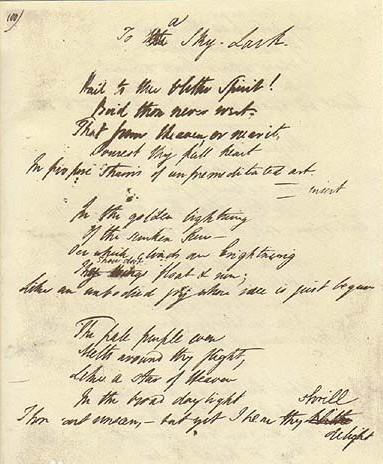 100)
To the a Sky-Lark.
Hail to thee blithe Spirit!
Bird thou never wert,
That from Heaven or near it,
Pourest thy full heart
In profuse strains of unpremeditated art.
insert
In the golden lightning
Of the sunken Sun—
Oer which clouds are brightning
Thou dost float & run;
Like an unbodied joy whose race is just begun
The pale purple even
Melts around thy flight,
Like a star of Heaven
In the broad day light
Thou art unseen,—but yet I hear thy blithe shrill
delight